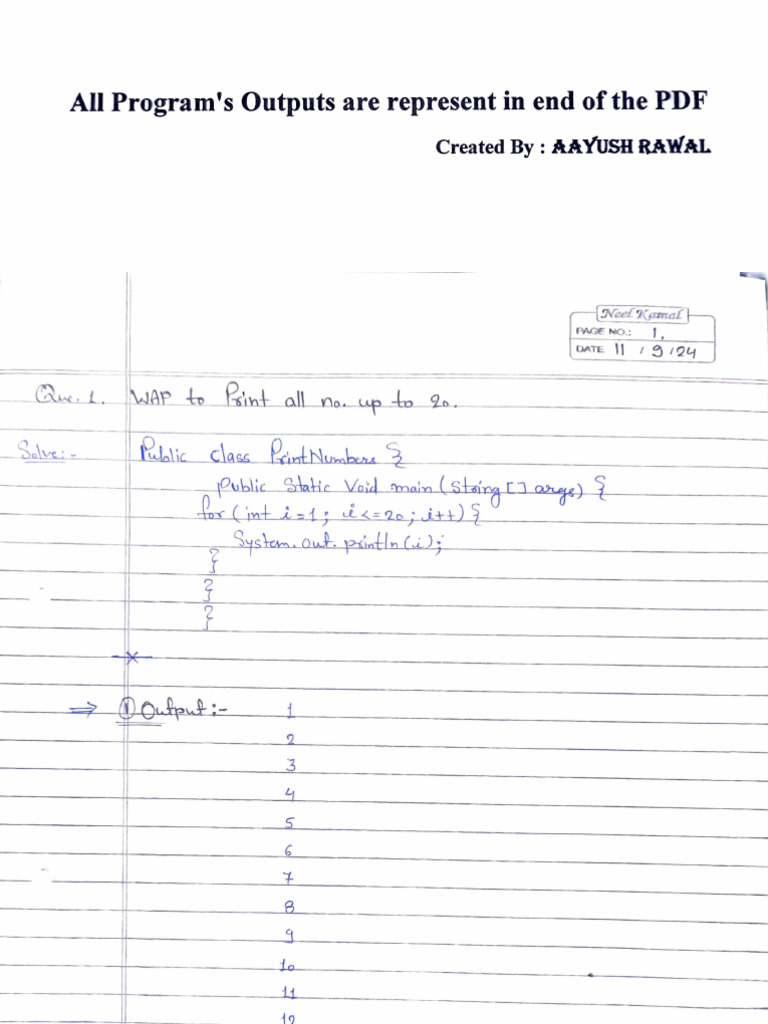 All Program's Outputs are represent in end of the PDF
Created By : AAYUSH RAWAL
Neel Kamal
PAGE NO.: 1,
DATE 11 / 9 / 24
Que. 1. WAP to Print all no. up to 20.
Solve:- Public class PrintNumbers {
public Static Void main (String [] args) {
for (int i=1; i<=20; i++) {
System.out.println(i);
}
}
}
⇒ ① Output :- 1
2
3
4
5
6
7
8
9
10
11
12